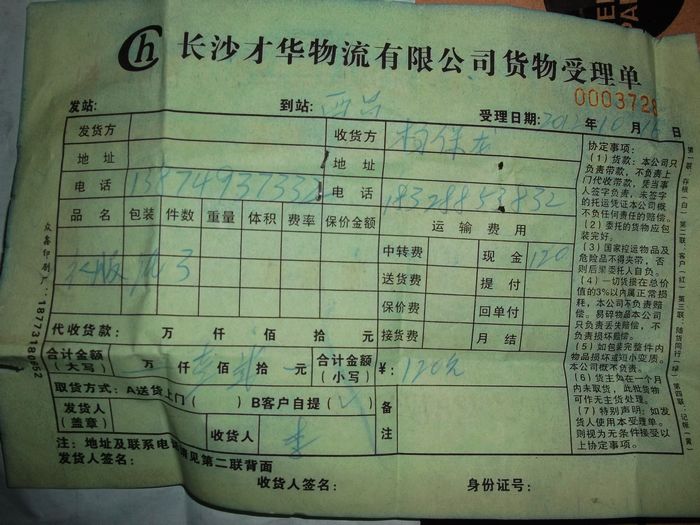 Ch 长沙才华物流有限公司货物受理单
0003728
发站: 到站: 受理日期:2012年10月16日
发货方 收货方 杨保才
地址 地址
电话 13874931332 电话 18328853832
品名 包装 件数 重量 体积 费率 保价金额 运输费用
3 中转费 现金 120
送货费 提付
保价费 回单付
代收货款: 万 仟 佰 拾 元 接货费 月结
合计金额(大写) 万 仟 壹 佰 贰 拾 元 合计金额(小写) ¥:120元
取货方式:A送货上门( ) B客户自提( )
发货人(盖章) 收货人 李 备注
注:地址及联系电话请见第二联背面
发货人签名:
收货人签名: 身份证号:
协定事项:
(1)货款:本公司只
负责带款,不负责上
门代收带款,凭当事
人签字负责,未签字
的托运凭证本公司概
不负任何责任的赔偿。
(2)委托的货物应包
装完好。
(3)国家控运物品及
危险品不得夹带,否
则后果委托人自负。
(4)一切货损在总价
值的3%以内属正常损
耗,本公司不负责赔
偿。易碎物品本公司
只负责丢失赔偿,不
负责损坏赔偿。
(5)如包装完整件内
物品损坏或短小变质。
本公司概不负责。
(6)货主如在一个月
内未取货,此批货物
可作无主货处理。
(7)特别声明:如发
货人使用本受理单。
则视为无条件接受以
上协定事项。
第一联:存根(白) 第二联:客户(红) 第三联:随货同行(绿) 第四联:记帐(黄)
众鑫印刷厂:18773188652